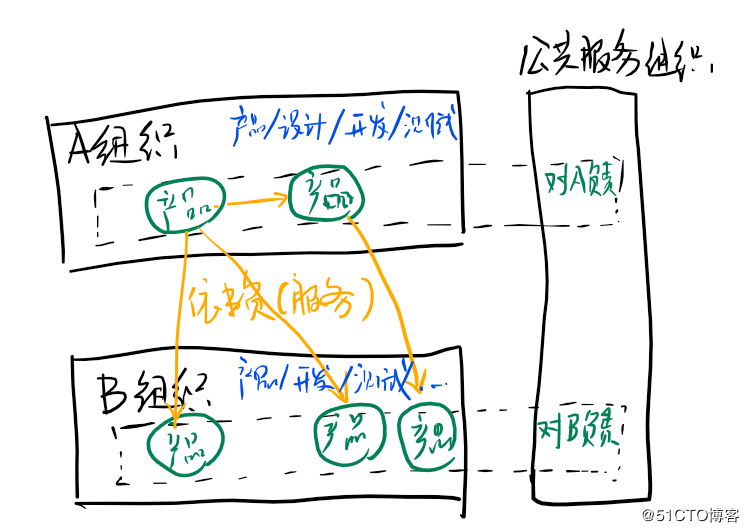 公共服务组织
A组织
产品/设计/开发/测试
产品
产品
对A负责
依赖(服务)
B组织
产品/开发/测试/...
产品
产品
产品
对B负责
@51CTO博客